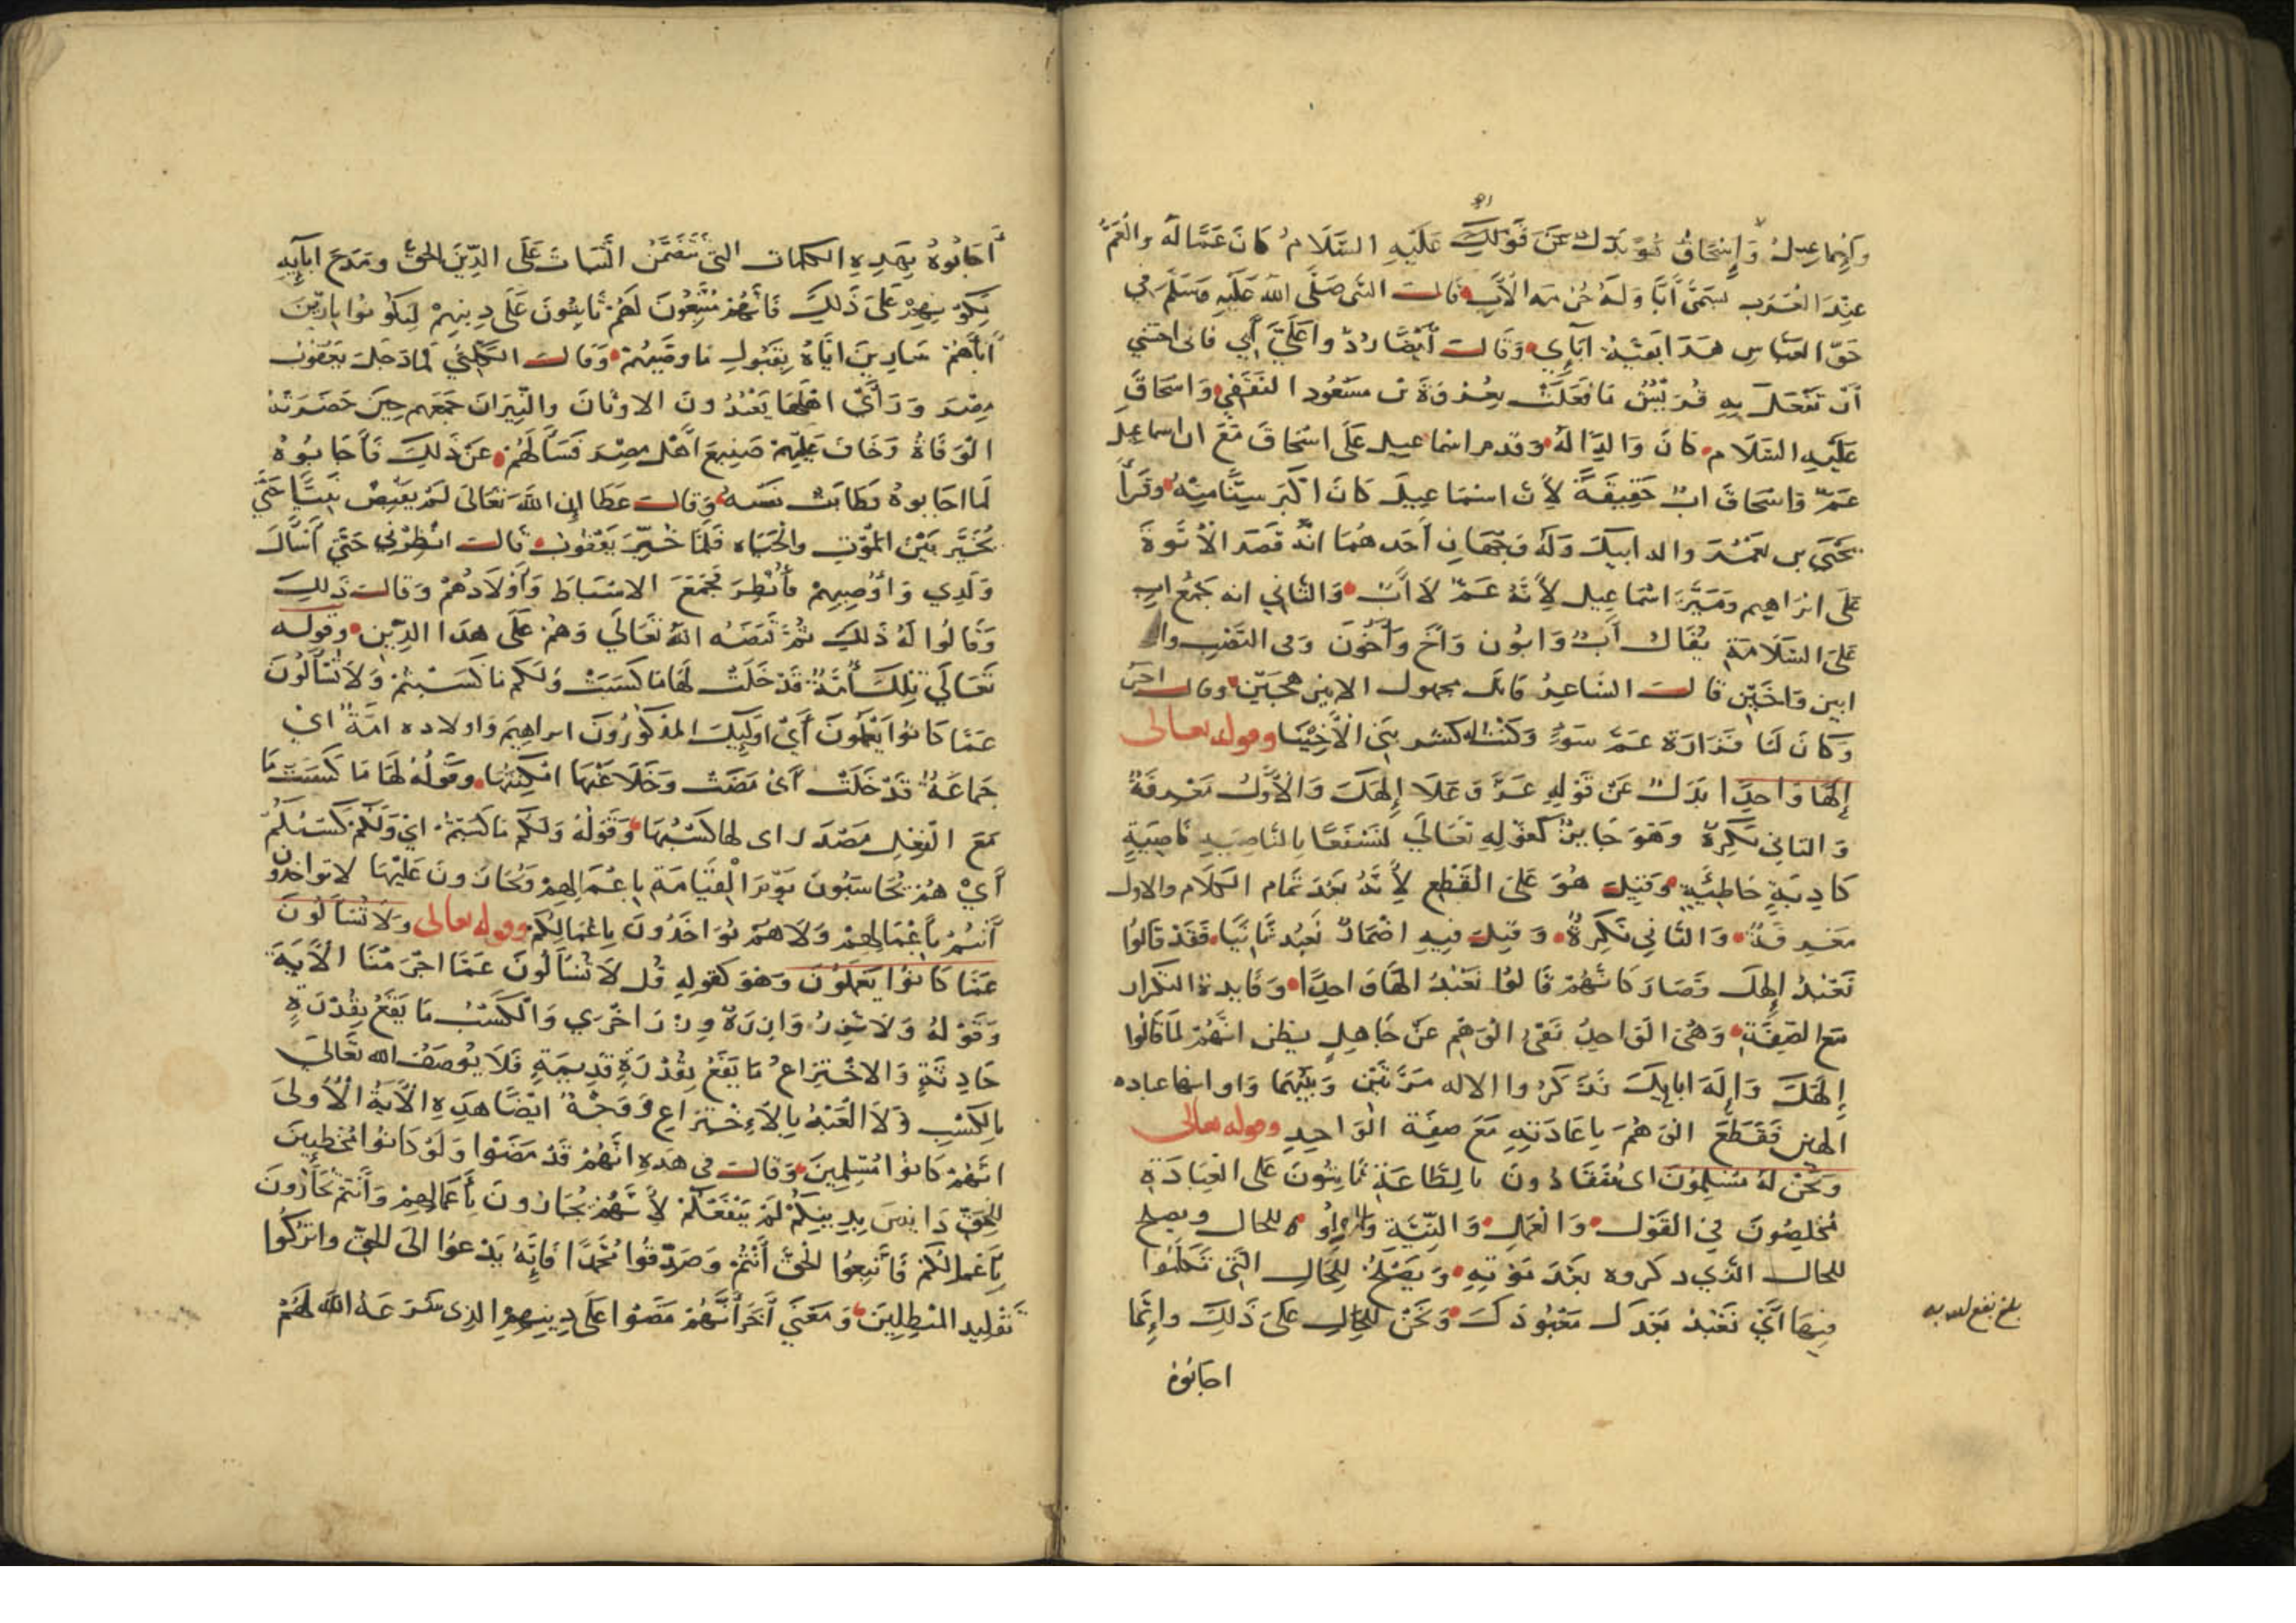 وإسماعيل وإسحاق هو بدل عن قولك عليه السلام كان عما له والعم
عند العرب يسمى أبا وله حرمة الأب قالت النبي صلى الله عليه وسلم في
حق العباس هذا بقية آبائي وقالت أيضا ردوا علي أبي فاني اخشى
أن تفعل به قريش ما فعلت بعروة بن مسعود الثقفي واسحاق
عليه السلام كان والدا له وقدم اسماعيل على اسحاق مع ان اسماعيل
عم واسحاق اب حقيقة لأن اسماعيل كان اكبر سنا منه وقرأ
يحيى بن يعمر واله ابيك وله وجهان أحدهما انه قصد الأبوة
على ابراهيم وميز اسماعيل لأنه عم لا أب والثاني انه جمع اب
على السلامة يقال أب وابون وأخ وأخون وفي النصب وا
ابين واخين قالت الشاعر الابين وقالت اخر
وكان لنا فزارة عم سوء وكنت له كشر بني الأخينا وقوله تعالى
إلها واحدا بدل عن قوله عز وعلا إلهك والأول معرفة
والثاني نكرة وهو جايز كقوله تعالى لنسفعا بالناصية ناصية
كاذبة خاطئة وقيل هو على القطع لأنه بعد تمام الكلام والاول
معرفة والثاني نكرة وقيل فيه اضمار نعبد ثانيا فقد قالوا
نعبد إلهك فصار كانهم قالوا نعبد الها واحدا وفايدة التكرار
مع الصفة وهي الواحد نفي الوهم عن جاهل يظن انهم لما قالوا
إلهك وإله ابايك فذكروا الاله مرتين وبينهما واو انها عباده
الهين فقطع الوهم باعادته مع صفة الواحد وقوله تعالى
ونحن له مسلمون اى منقادون بالطاعة ثابتون على العبادة
مخلصون في القول والعمل والنية والواو للحال ويصلح
للحال الذي ذكروه بعد موته ويصلح للحال التي تكلموا
فيها أي نعبد بعدك معبودك ونحن للحال على ذلك وإنما
اجابوه
بلغ نفع الله به
أجابوه بهذه الكلمات التي تتضمن الثبات على الدين الحق ومدح ابآيه
بكونهم على ذلك فانهم متبعون لهم ثابتون على دينهم ليكونوا بارين
أباهم سارين اياه بقبول ما وصيهم وقالت الكلبي لما دخل يعقوب
مصر ورأى اهلها يعبدون الاوثان والنيران جمعهم حين حضرته
الوفاة وخاف عليهم صنيع أهل مصر فسألهم عن ذلك فأجابوه
لما اجابوه وطابت نفسه وقالت عطا إن الله تعالى لم يقبض نبيا حتى
يخير بين الموت والحياه فلما خير يعقوب قالت انظرني حتى أسأل
ولدي وأوصيهم فأنظر فجمع الاسباط وأولادهم وقالت ذلك
وقالوا له ذلك ثم قبضه الله تعالى وهم على هذا الدين وقوله
تعالى تلك أمة قد خلت لها ما كسبت ولكم ما كسبتم ولا تسألون
عما كانوا يعملون أي اوليك المذكورون ابراهيم واولاده امة اي
جماعة قد خلت أي مضت وخلا عنها امكنتها وقوله لها ما كسبت ما
مع الفعل مصدر اى لها كسبها وقوله ولكم ما كسبتم اي ولكم كسبكم
أي هم يحاسبون يوم القيامة باعمالهم ويجازون عليها لا تواخذون
أنتم بأعمالهم ولا هم يواخذون باعمالكم وقوله تعالى ولا تسألون
عما كانوا يعملون وهو كقوله قل لا تسألون عما اجرمنا الآية
وقوله ولا تزر وازرة وزر اخرى والكسب ما يقع بقدرة
حادثة والاختراع ما يقع بقدرة قديمة فلا يوصف الله تعالى
بالكسب ولا العبد بالاختراع ووجه ايضا هذه الآية الأولى
انهم كانوا مسلمين وقالت في هذه انهم قد مضوا ولو كانوا مخطيين
للحق دايس بدينكم لم ينفعكم لأنهم يجازون بأعمالهم وأنتم تجازون
بأعمالكم فاتبعوا الحق أنتم وصدقوا محمدا فإنه يدعوا الى الحق واتركوا
تقليد المبطلين ومعنى آخر أنهم مضوا على دينهم الذي شرعه الله لهم